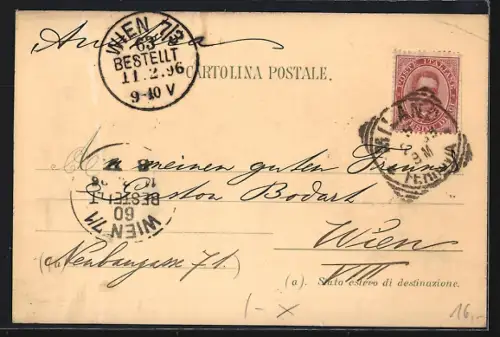 Austria
WIEN 7/3
63
BESTELLT
11.2.96
9-10 V
CARTOLINA POSTALE.
POSTE ITALIANE
MILANO
FERROVIA
An meinen guten Freund
Gaston Bodart
BESTELLT
60
WIEN 7/1
Wien
VII
(a) Neubaugasse 71.
(a). Stato estero di destinazione.
1-x
16,-